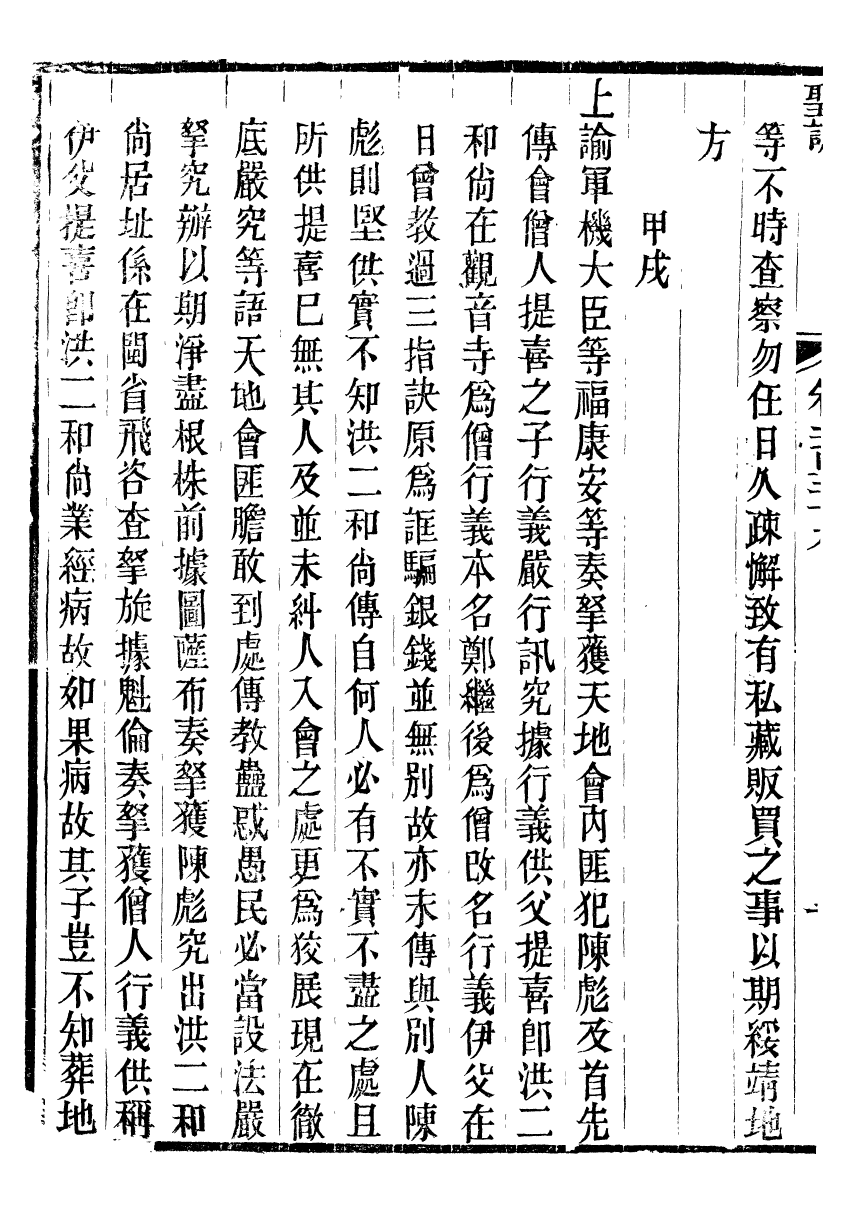 聖訓
等不時查察勿任日久疎懈致有私藏販買之事以期綏靖地
方
甲戌
上諭軍機大臣等福康安等奏拏獲天地會內匪犯陳彪及首先
傳會僧人提喜之子行義嚴行訊究據行義供父提喜卽洪二
和尙在觀音寺爲僧行義本名鄭繼後爲僧改名行義伊父在
日曾教過三指訣原爲誆騙銀錢並無別故亦未傳與別人陳
彪則堅供實不知洪二和尙傳自何人必有不實不盡之處且
所供提喜已無其人及並未糾人入會之處更爲狡展現在徹
底嚴究等語天地會匪膽敢到處傳教蠱惑愚民必當設法嚴
拏究辦以期淨盡根株前據圖薩布奏拏獲陳彪究出洪二和
尙居址係在閩省飛咨查拏旋據魁倫奏拏獲僧人行義供稱
伊父提喜卽洪二和尙業經病故如果病故其子豈不知葬地